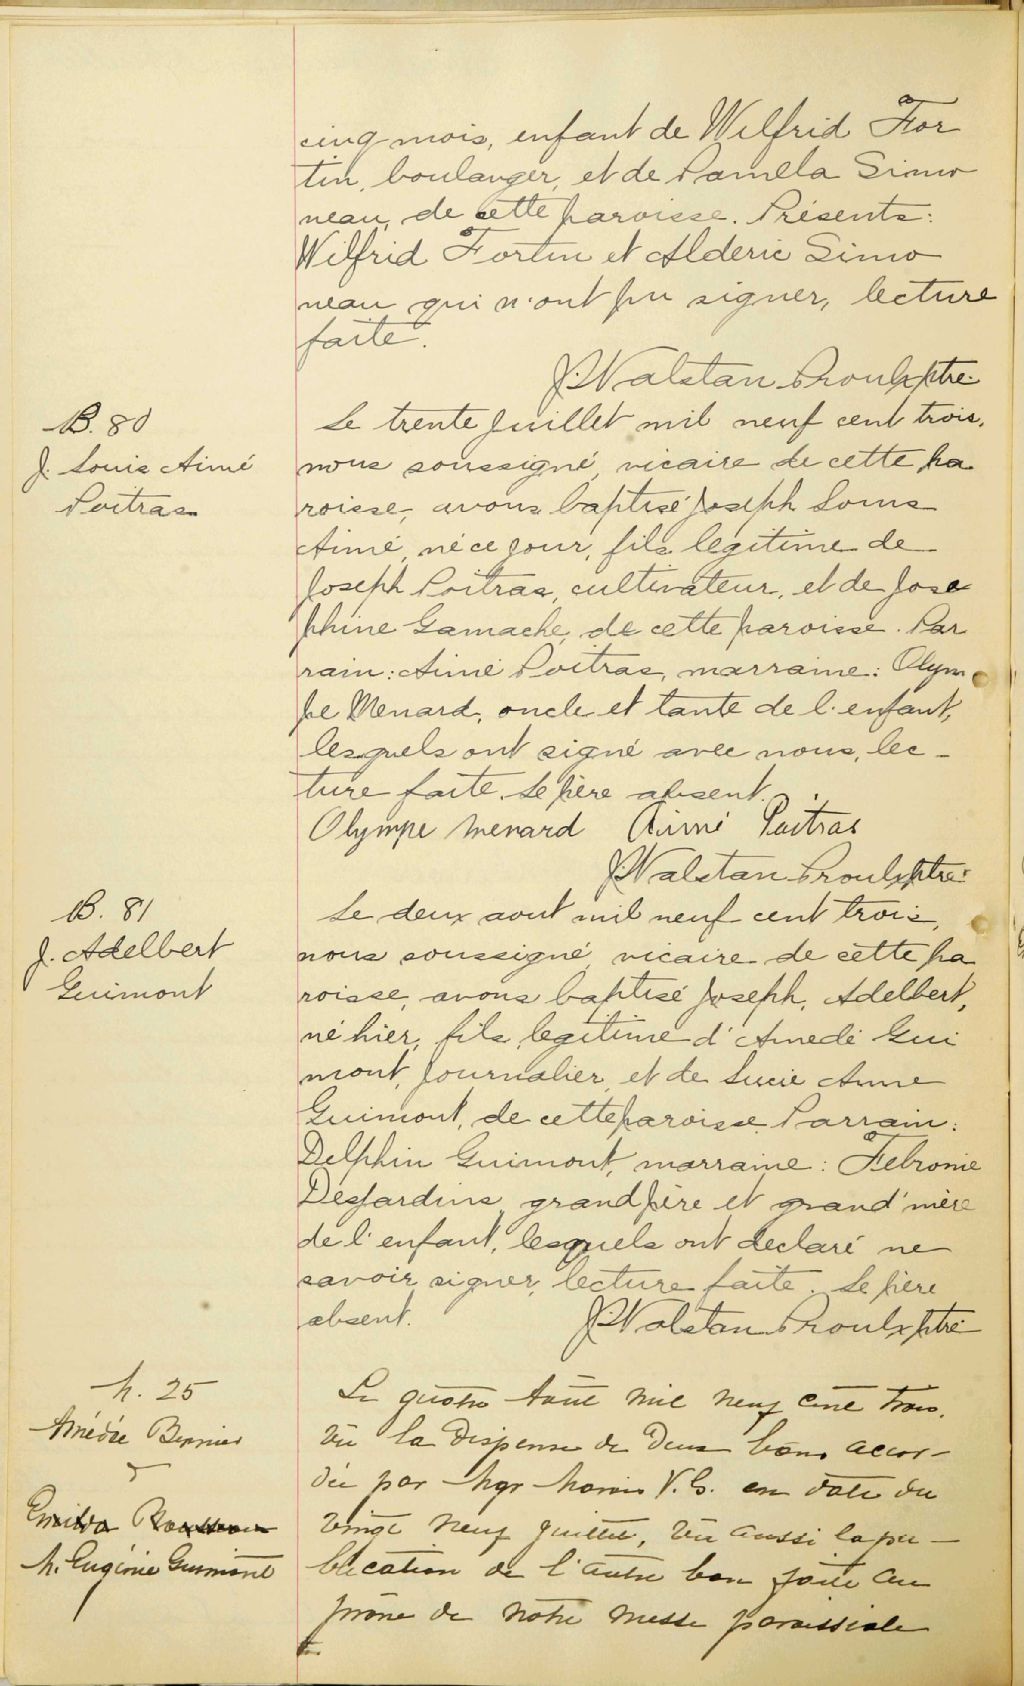 cinq mois, enfant de Wilfrid For
tin, boulanger, et de Pamela Simo
neau, de cette paroisse. Présents:
Wilfrid Fortin et Alderic Simo
neau qui n'ont pu signer, lecture
faite.
J. Walstan Proulx ptre.
B. 80
J. Louis Aimé
Poitras
Le trente juillet mil neuf cent trois,
nous soussigné, vicaire de cette pa
roisse, avons baptisé Joseph Louis
Aimé, né ce jour, fils legitime de
Joseph Poitras, cultivateur, et de Jose
phine Gamache, de cette paroisse. Par
rain: Aimé Poitras, marraine: Olym
pe Menard, oncle et tante de l'enfant,
lesquels ont signé avec nous, lec-
ture faite. Le père absent.
Olympe Menard Aimé Poitras
J. Walstan Proulx ptre.
B. 81
J. Adelbert
Guimont
Le deux aout mil neuf cent trois,
nous soussigné, vicaire de cette pa
roisse, avons baptisé Joseph, Adelbert,
né hier, fils legitime d'Amedé Gui
mont, journalier, et de Lucie Anne
Guimont, de cette paroisse Parrain:
Delphin Guimont, marraine: Febronie
Desjardins, grand père et grand'mère
de l'enfant, lesquels ont declaré ne
savoir signer, lecture faite. Le père
absent.
J. Walstan Proulx ptre.
M. 25
Amédée Bernier
&
M. Eugénie Guimont
Le quatre Août mil neuf cent trois,
Vu la dispense de deux bans accor-
dée par Mgr Marois V.G. en date du
vingt neuf juillet, Vu aussi la pu-
blication de l'autre ban faite au
prône de notre messe paroissiale